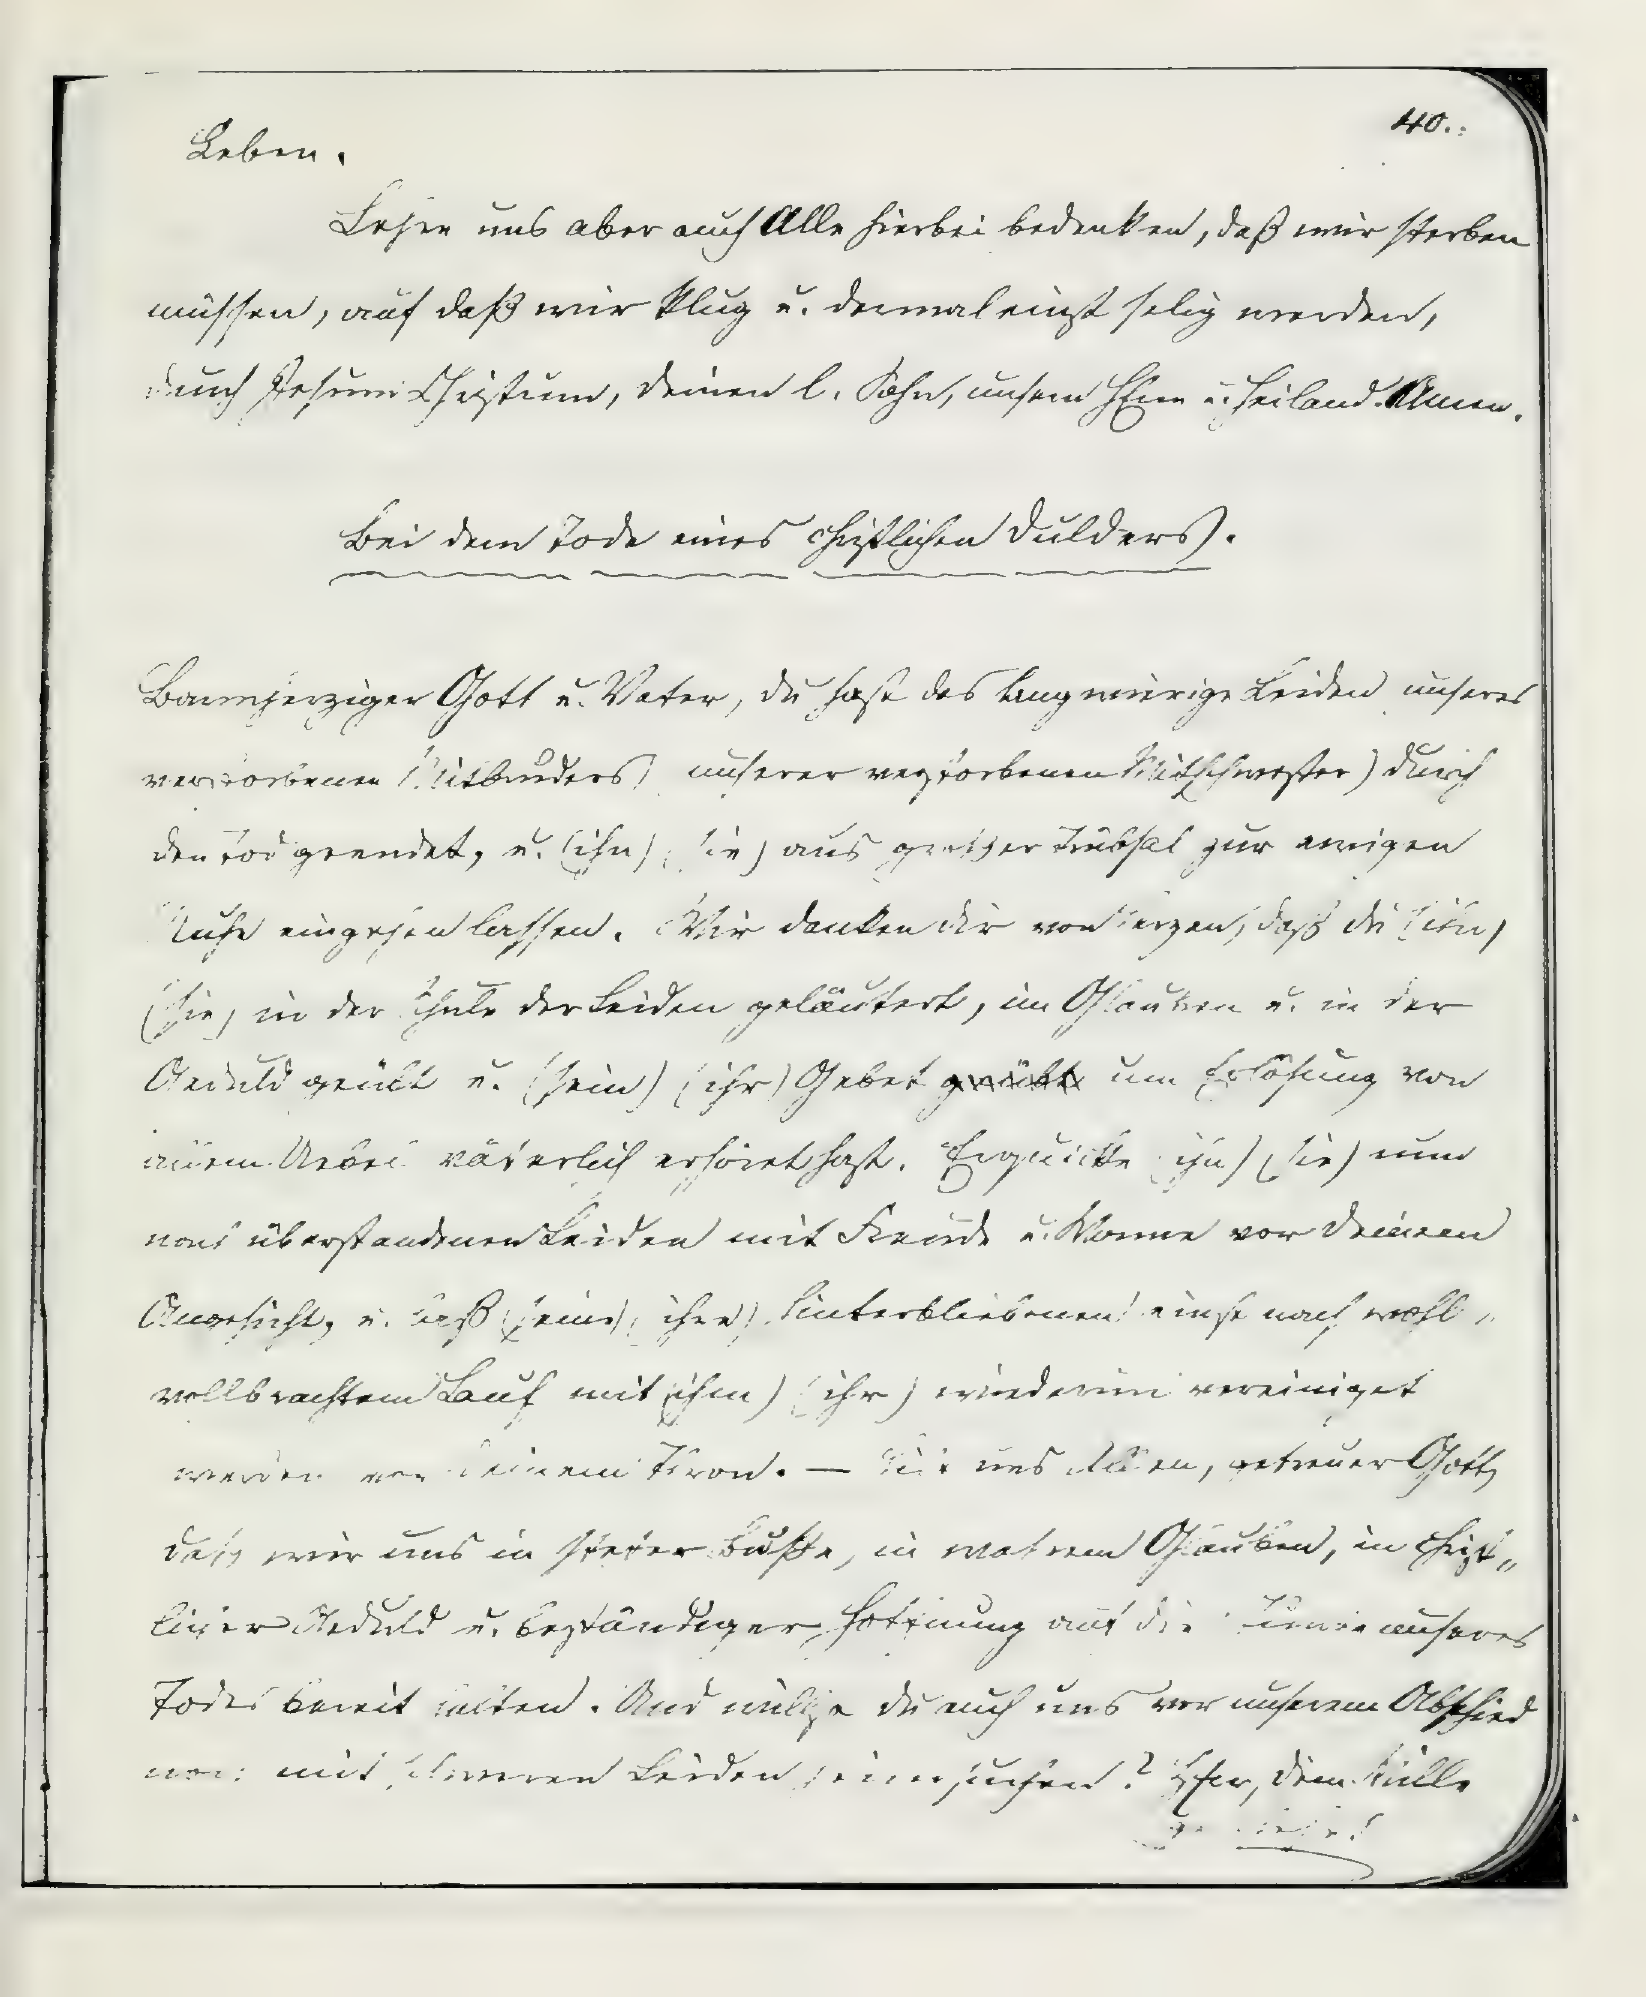 40.
Leben.
Lehre uns aber auch Alle hierbei bedenken, daß wir sterben
müssen, auf daß wir klug u. dermaleinst selig werden,
durch Jesum Christum, deinen l. Sohn, unsern HErrn u. Heiland. Amen.
Bei dem Tode eines christlichen Dulders.
Barmherziger Gott u. Vater, du hast das langwierige Leiden unseres
verstorbenen Mitbruders) unserer verstorbenen Mitschwester) durch
den Tod geendet, u. (ihn) (sie) aus großer Trübsal zur ewigen
Ruhe eingehen lassen. Wir danken dir von Herzen, daß du (ihn)
(sie) in der Schule der Leiden geläutert, im Glauben u. in der
Geduld geübt u. (sein) (ihr) Gebet um Erlösung von
allem Uebel väterlich erhöret hast. Erquicke (ihn) (sie) nun
nach überstandenen Leiden mit Freude u. Wonne vor deinem
Angesicht, u. laß (seine) (ihre) Hinterbliebenen einst nach wohl-
vollbrachtem Lauf mit (ihm) (ihr) wiederum vereiniget
werden vor deinem Thron. — Gib uns Allen, getreuer Gott,
daß wir uns in steter Buße, in wahrem Glauben, in christ„
licher Geduld u. beständiger Hoffnung auf die Stunde unseres
Todes bereit halten. Und willst du auch uns vor unserem Abschied
noch mit schweren Leiden heimsuchen? HErr, dein Wille
geschehe!